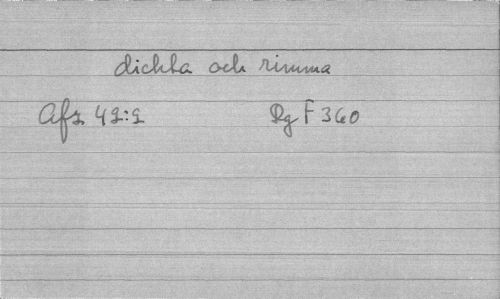 dichta och rimma
Afz 42:2 Rg F 360